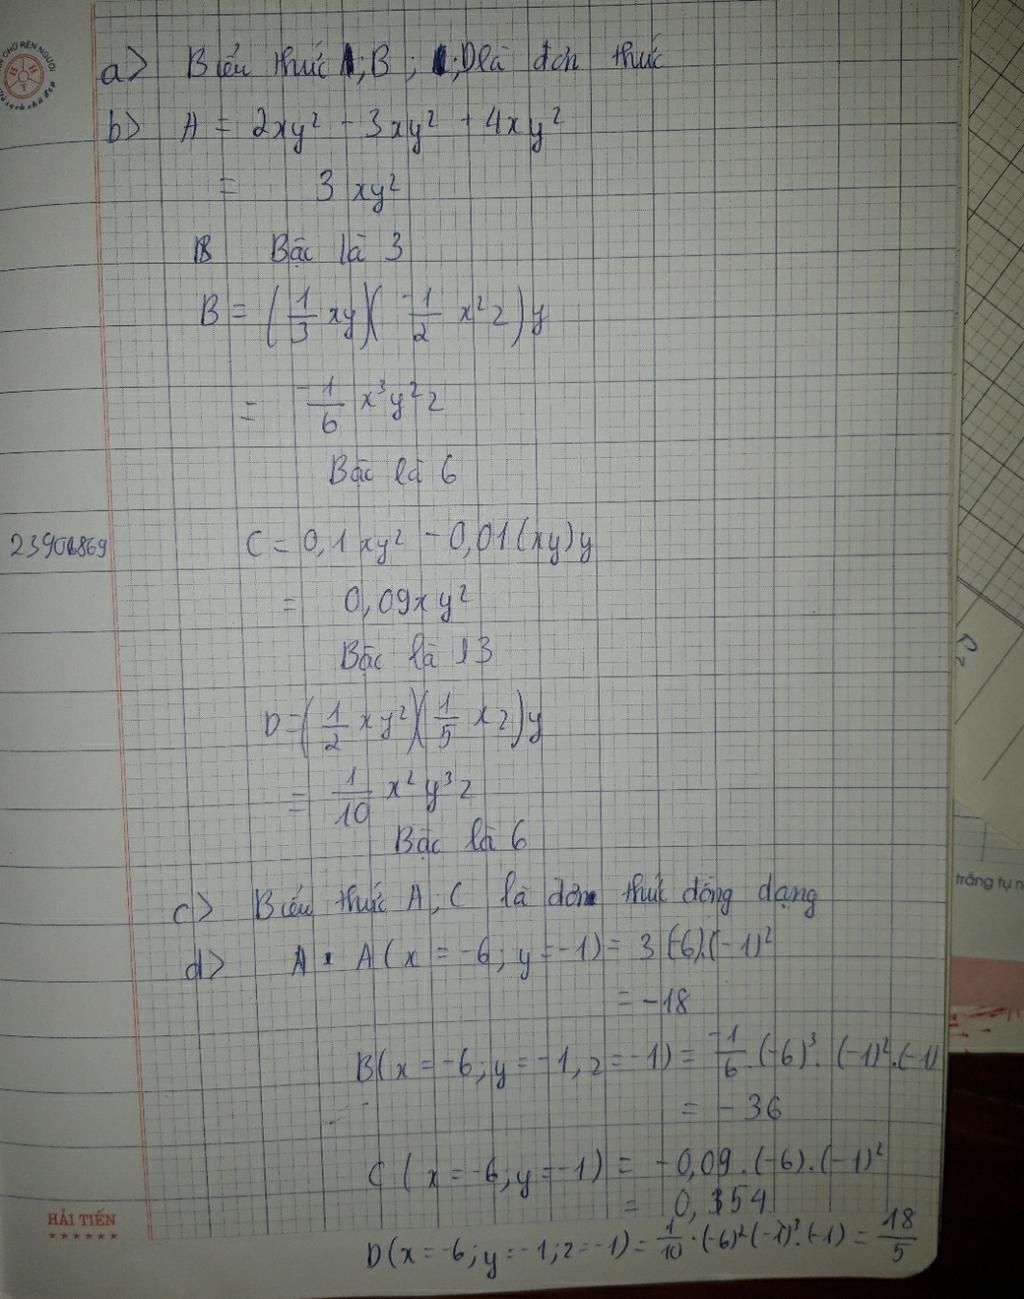 a> Biểu thức B; D là đơn thức
b> A = 2xy² - 3xy² + 4xy²
= 3 xy²
Bậc là 3
B = (1/3 xy)(-1/2 x²z)y
= -1/6 x³y²z
Bậc là 6
C = 0,1xy² - 0,01(xy)y
= 0,09xy²
Bậc là 3
D = (1/2 xy²)(1/5 xz)y
= 1/10 x²y³z
Bậc là 6
c> Biểu thức A, C là đơn thức đồng dạng
d> A(x = -6; y = -1) = 3(-6).(-1)²
= -18
B(x = -6; y = -1, z = -1) = -1/6.(-6)³.(-1)².(-1)
= -36
C(x = -6; y = -1) = -0,09.(-6).(-1)²
= 0,54
D(x = -6; y = -1; z = -1) = 1/10.(-6)²(-1)³.(-1) = 18/5
HẢI TIẾN
trắng tự n